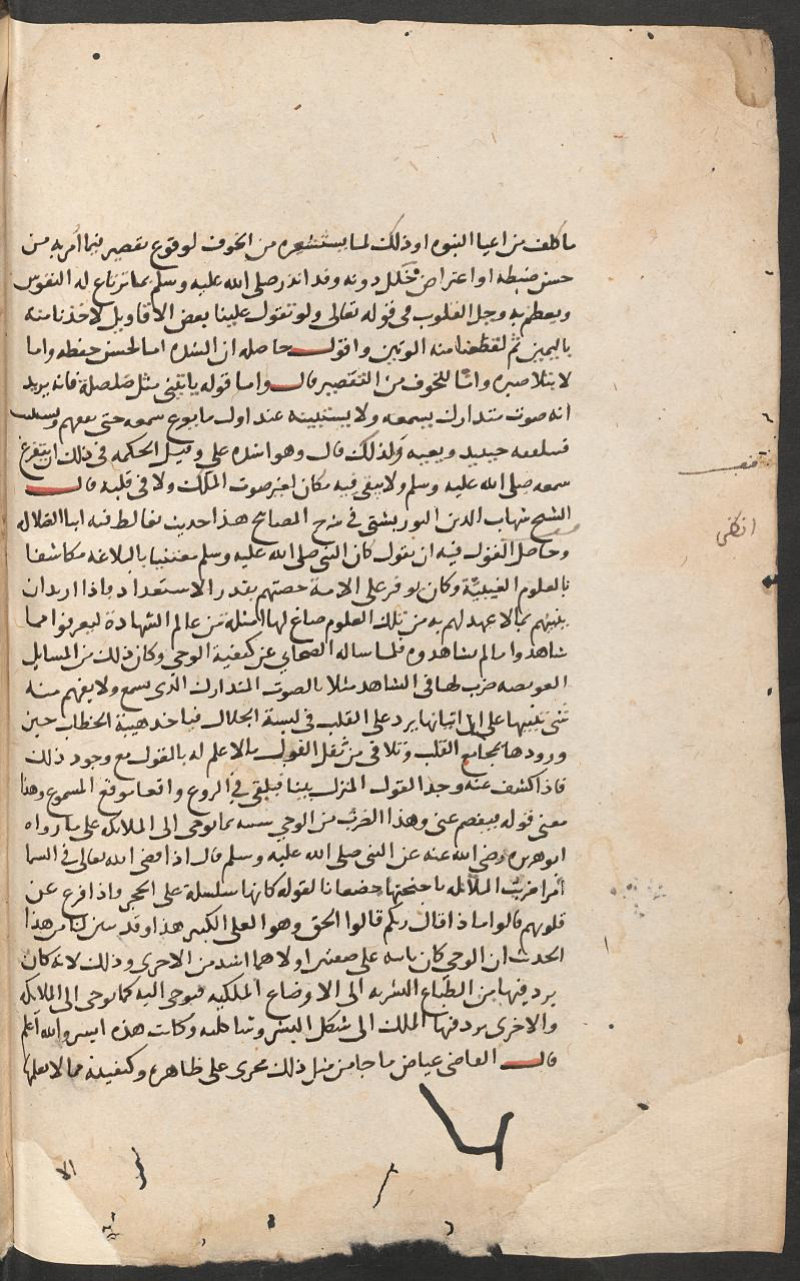 ما كلف من اعبا النبوه او ذلك لما يستشعره من الخوف لوقوع تقصير فيما أمر به من
حسن ضبطه او اعتراض خلل دونه وقد انذر صلى الله عليه وسلم بما ترتاع له النفوس
ويعظم به وجل القلوب في قوله تعالى ولو تقول علينا بعض الاقاويل لاخذنا منه
باليمين ثم لقطعنا منه الوتين واقول حاصله ان الشده اما لحسن حفظه واما
لابتلا صبره واما للخوف من التقصير قال واما قوله ياتيني مثل صلصلة فانه يريد
انه صوت متدارك يسمعه ولا يستبينه عند اول ما يقرع سمعه حتى يتفهم ويستثبت
فيتلقفه حينيد ويعيه ولذلك قال وهو اشده علي وقيل الحكمه في ذلك ان يتفرغ
سمعه صلى الله عليه وسلم ولا يبقى فيه مكان لغير صوت الملك ولا في قلبه قال
الشيخ شهاب الدين التوربشتي في شرح المصابيح هذا حديث تغالط فيه ابنا الضلاله
وحاصل القول فيه ان يقول كان النبي صلى الله عليه وسلم معتنيا بالبلاغه مكاشفا
بالعلوم الغيبيّة وكان يوفر على الامة حصتهم بقدر الاستعداد فاذا اريد ان
ينبيهم بما لا عهد لهم به من تلك العلوم صاغ لها امثلة من عالم الشهادة ليعرفوا مما
شاهدوا ما لم يشاهدوه فلما ساله الصحابي عن كيفية الوحي وكان ذلك من المسايل
العويصه ضرب لها في الشاهد مثلا بالصوت المتدارك الذي يسمع ولا يفهم منه
شى تنبيها على ان اتيانها يرد على القلب في لبسة الجلال فياخذ هيبة الخطاب حين
ورودها بمجامع القلب وتلاقي من ثقل القول ما لا علم له بالقول مع وجود ذلك
فاذا كشف عنه وجد القول المنزل بينا فيلقى في الروع واقعا موقع المسموع وهذا
معنى قوله فيفصم عني وهذا الضرب من الوحي شبيه بما يوحى الى الملايكه على ما رواه
ابو هريره رضي الله عنه عن النبي صلى الله عليه وسلم قال اذا قضى الله تعالى في السما
امرا ضربت الملايكه باجنحتها خضعانا لقوله كانها سلسلة على الحجر واذا فزع عن
قلوبهم قالوا ماذا قال ربكم قالوا الحق وهو العلى الكبير هذا وقد تبين لنا من هذا
الحديث ان الوحي كان ياتيه على صفتين اولاهما اشد من الاخرى وذلك لانه كان
يرد فيها من الطباع البشريه الى الاوضاع الملكيه فيوحى اليه كما يوحى الى الملايكه
والاخرى يرد فيها الملك الى شكل البشر وشاكلته وكانت هذه ايسر والله أعلم
قال القاضي عياض ما جا من مثل ذلك مجرى على ظاهره وكيفيته مما لا يعلمها
الا